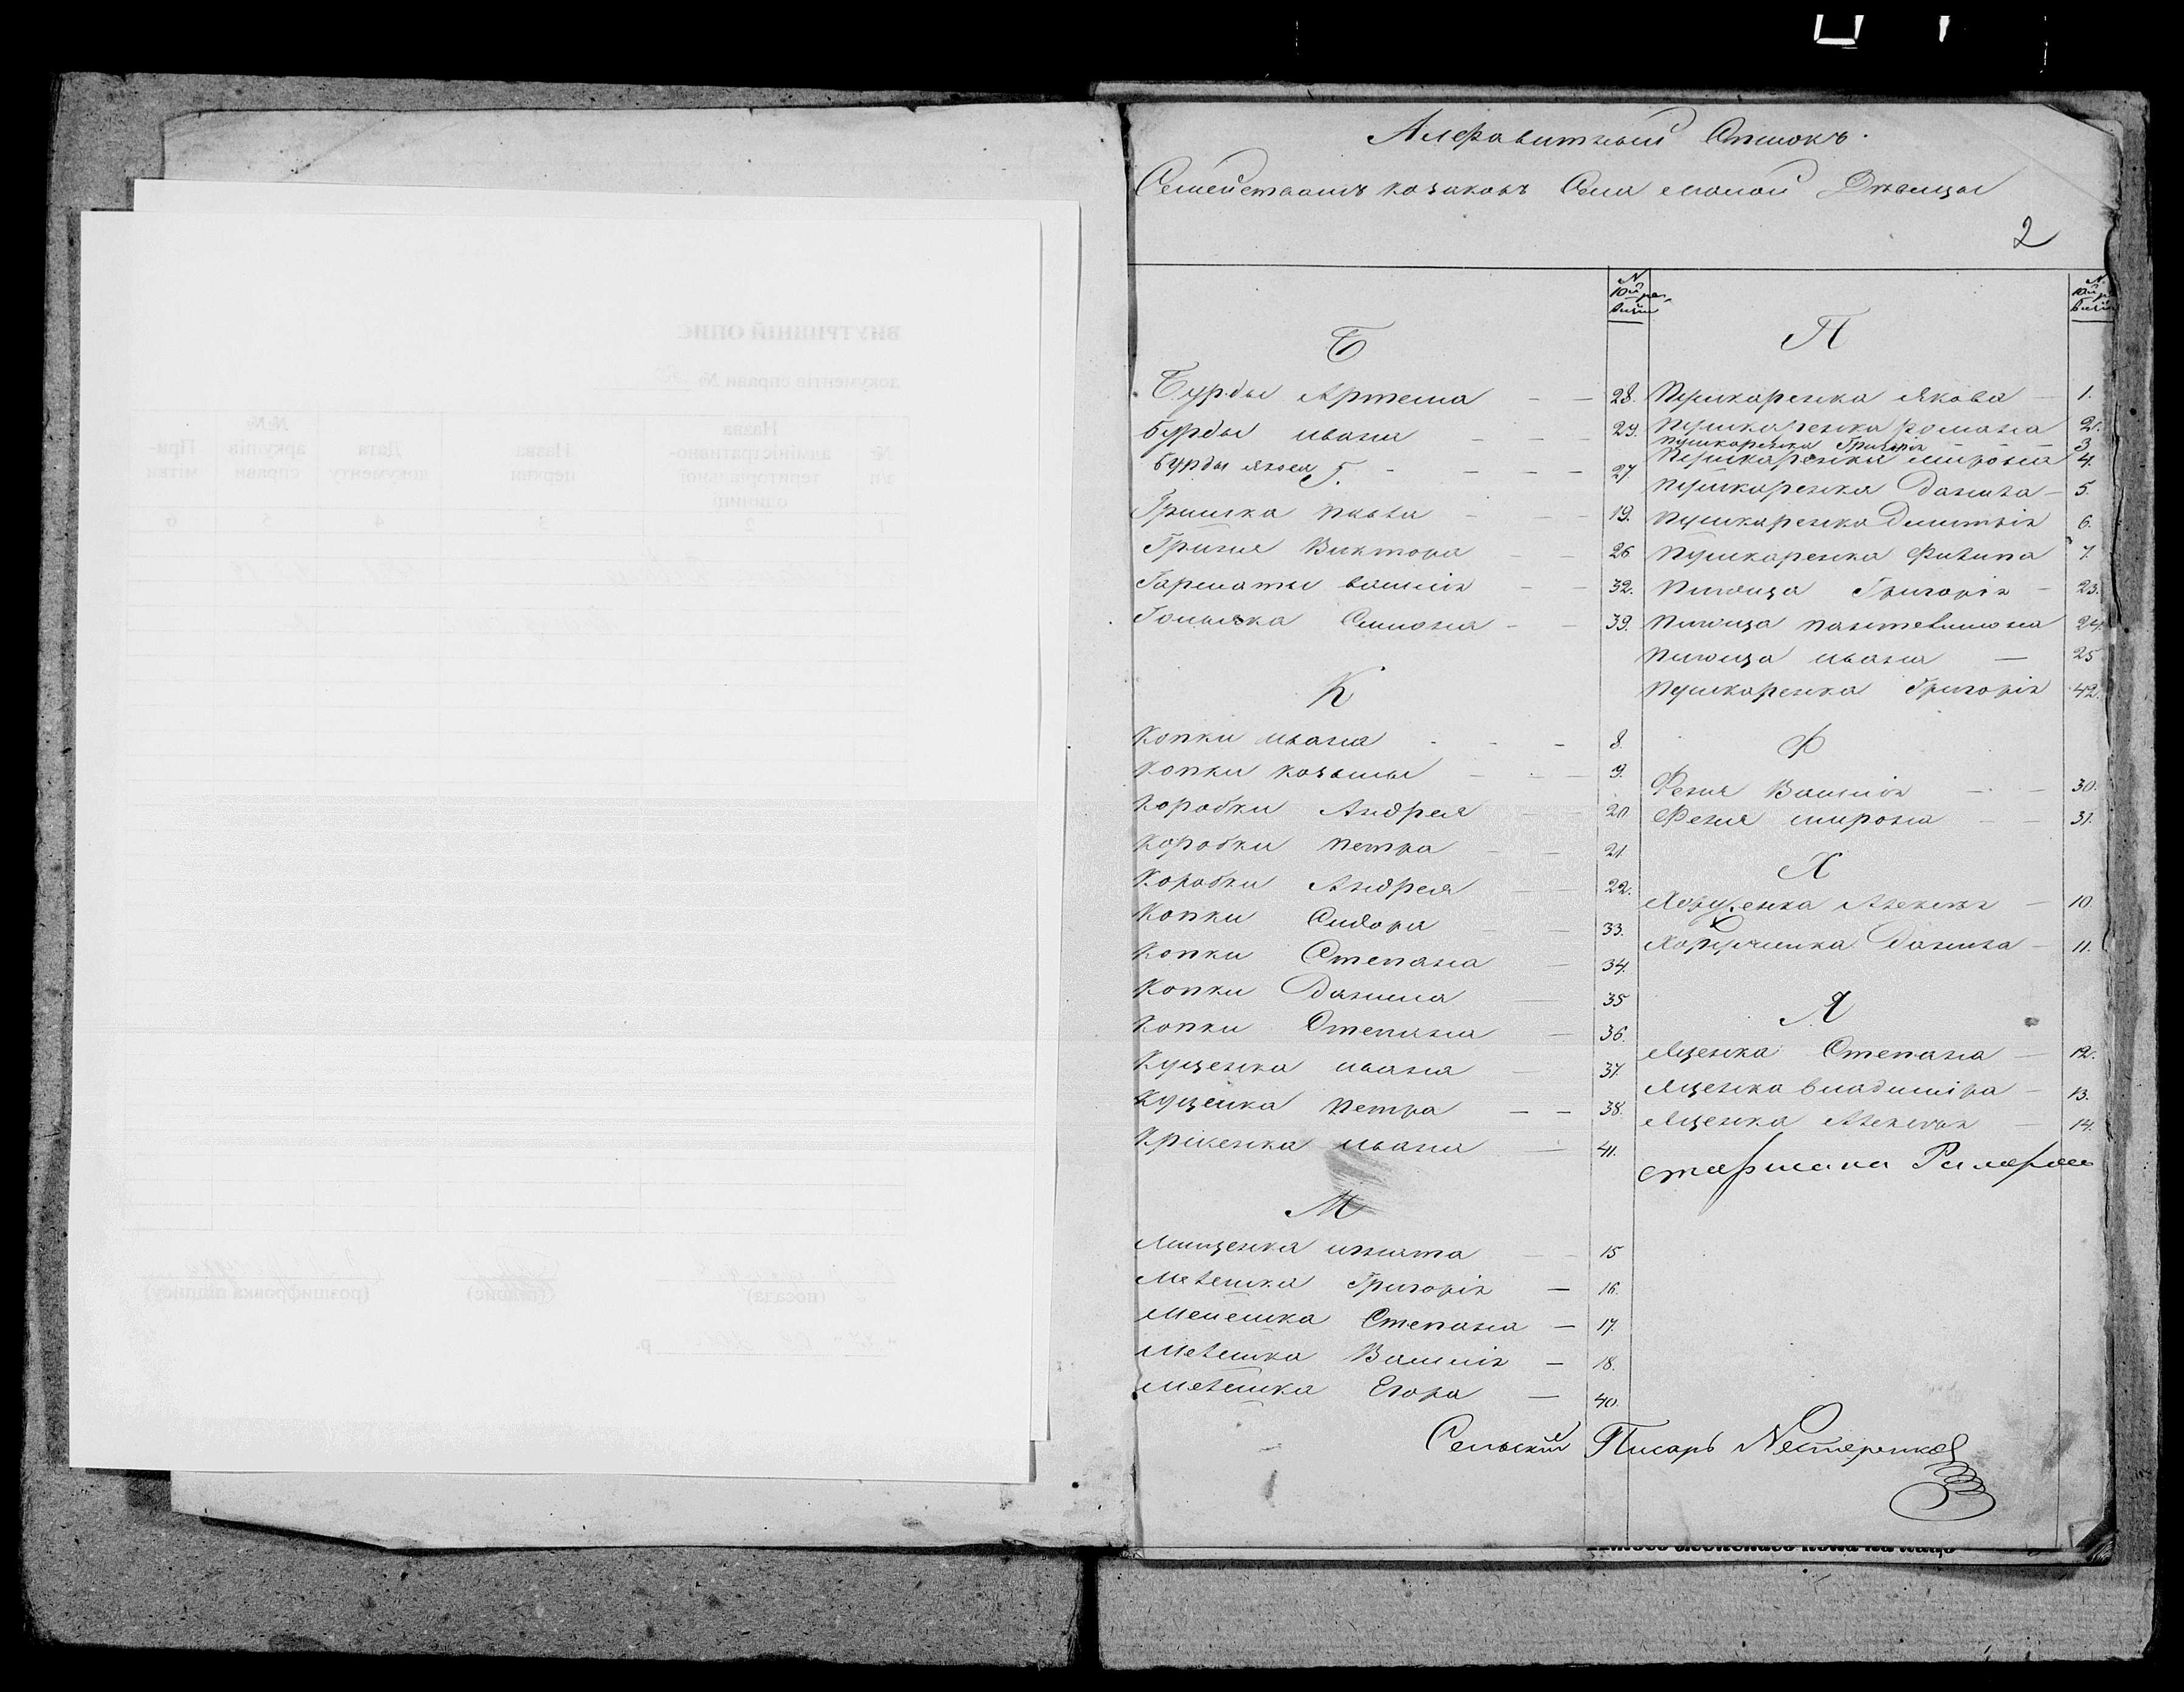 Алфавитный Списокъ
Семействамъ козаковъ Села малой
2
N 10й ревизіи
Б
Бурды Артема 28.
Бурды Ивана 29.
Бурды Якова 27
Г.
Гришка 19.
Григия Виктора 26
Гарматы Василія 32.
Симона 39.
К
Копки Ивана 8.
Копки Козьмы 9.
Коробки Андрея 20
Коробки Петра 21.
Коробки Андрея 22.
Копки Сидора 33.
Копки Степана 34.
Копки Данила 35
Копки Степана 36.
Куценка Ивана 37.
Куценка Петра 38.
Ивана 41.
М
Мищенка Игната 15
Мелешка Григорія 16.
Мелешка Степана 17.
Мелешка Василія 18.
Мелешка Егора 40.
N 10й ревизіи
П
Пушкаренка Якова 1.
Пушкаренка Романа 2.
Пушкаренка Григорія 3
Пушкаренка Мирона 4.
Пушкаренка Данила 5.
Пушкаренка Дмитрія 6.
Пушкаренка Филипа 7.
Григорія 23.
Пантелимона 24.
Ивана 25
Пушкаренка Григорія 42.
Ф
Феня Василія 30.
Феня Мирона 31.
Х
Алексѣя 10.
Данила 11.
Я
Яценка Степана 12.
Яценка Владиміра 13.
Яценка Алексѣя 14.
Сельский Писарь Нестеренко
ВНУТРІШНІЙ ОПИС
документів справи №
№ з/п
Назва адміністративно-територіальної одиниці
Назва церкви
Дата документу
№№ аркушів справи
Примітки
1 2 3 4 5 6
(посада) (підпис) (розшифровка підпису)
р.